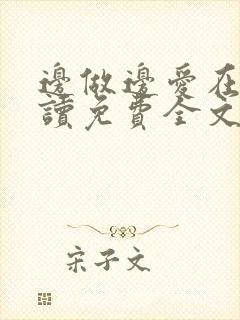 邊做邊愛在
讀免費全文
宋子文